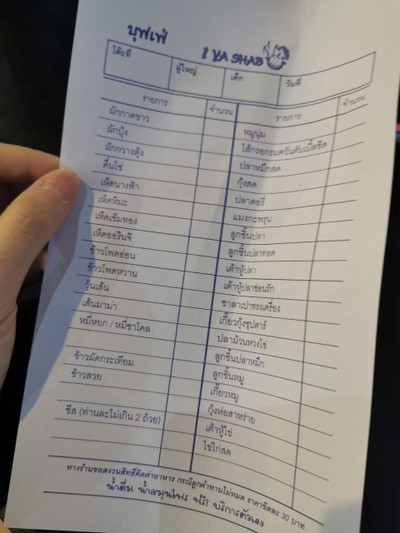 บุฟเฟ่ I YA SHAB
โต๊ะที่ ผู้ใหญ่ เด็ก วันที่
รายการ จำนวน รายการ จำนวน
ผักกาดขาว หมูนุ่ม
ผักบุ้ง ไส้กรอกรมควันดับเบิ้ลชีส
ผักกวางตุ้ง ปลาหมึกสด
คื่นไช่ กุ้งสด
เห็ดนางฟ้า ปลาดอรี่
เห็ดหิมะ แมงกะพรุน
เห็ดเข็มทอง ลูกชิ้นปลา
เห็ดออรินจิ ลูกชิ้นปลาทอด
ข้าวโพดอ่อน เต้าหู้ปลา
ข้าวโพดหวาน เต้าหู้ปลาซ่อนรัก
วุ้นเส้น ซาลาเปาทรงเครื่อง
เส้นมาม่า เกี๊ยวกุ้งชุปตาร์
หมี่หยก / หมี่ชาโคล ปลาม้วนหวงไข่
ลูกชิ้นปลาหมึก
ข้าวผัดกระเทียม ลูกชิ้นหมู
ข้าวสวย เกี๊ยวหมู
กุ้งห่อสาหร่าย
ชีส (ท่านละไม่เกิน 2 ถ้วย) เต้าหู้ไข่
ไข่ไก่สด
ทางร้านขอสงวนสิทธิ์คิดค่าอาหาร กรณีลูกค้าทานไม่หมด ราคาขีดละ 30 บาท
น้ำดื่ม น้ำสมุนไพร ฟรี! บริการตัวเอง